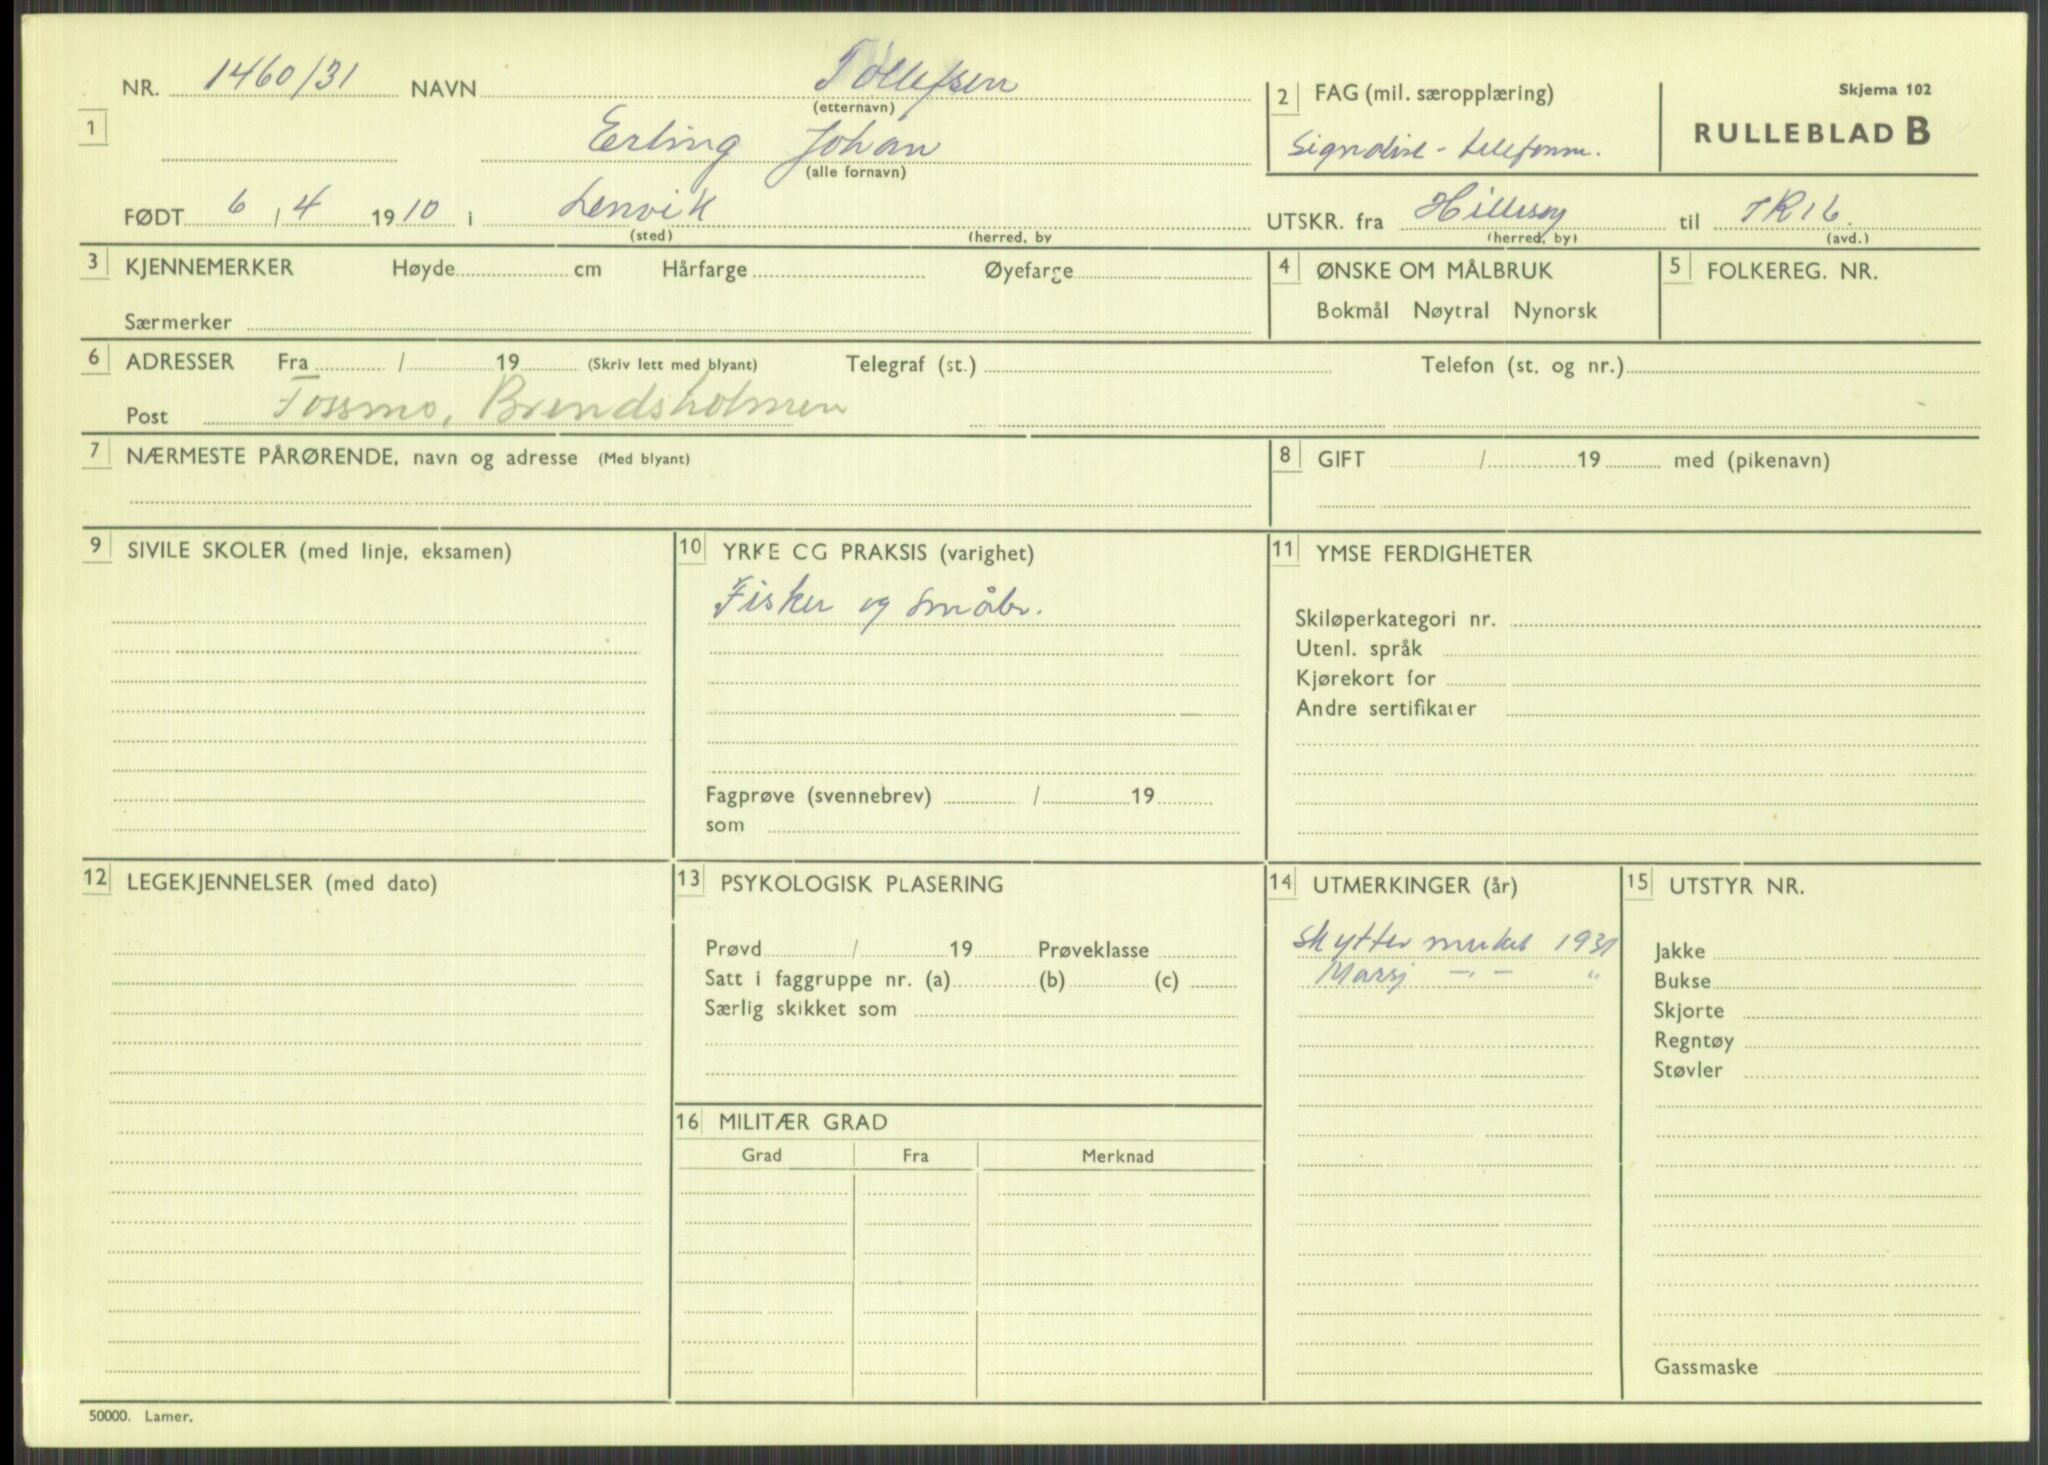 NR. 1460/31 NAVN Tollefsen
(etternavn)
1 Erling Johan
(alle fornavn)
FØDT 6 / 4 1910 i Lenvik
(sted) (herred, by
2 FAG (mil. særopplæring)
Signalist - telefonm.
Skjema 102
RULLEBLAD B
UTSKR. fra Hillesøy til IR16.
(herred, by) (avd.)
3 KJENNEMERKER Høyde cm Hårfarge Øyefarge
Særmerker
4 ØNSKE OM MÅLBRUK
Bokmål Nøytral Nynorsk
5 FOLKEREG. NR.
6 ADRESSER Fra / 19 (Skriv lett med blyant) Telegraf (st.) Telefon (st. og nr.)
Post Fossmo, Brendsholmen
7 NÆRMESTE PÅRØRENDE, navn og adresse (Med blyant)
8 GIFT / 19 med (pikenavn)
9 SIVILE SKOLER (med linje, eksamen)
10 YRKE OG PRAKSIS (varighet)
Fisker og småbr.
Fagprøve (svennebrev) / 19
som
11 YMSE FERDIGHETER
Skiløperkategori nr.
Utenl. språk
Kjørekort for
Andre sertifikater
12 LEGEKJENNELSER (med dato)
13 PSYKOLOGISK PLASERING
Prøvd / 19 Prøveklasse
Satt i faggruppe nr. (a) (b) (c)
Særlig skikket som
14 UTMERKINGER (år)
Skytter merket 1931
Marsj -"- "
15 UTSTYR NR.
Jakke
Bukse
Skjorte
Regntøy
Støvler
Gassmaske
16 MILITÆR GRAD
Grad Fra Merknad
50000. Lamer.